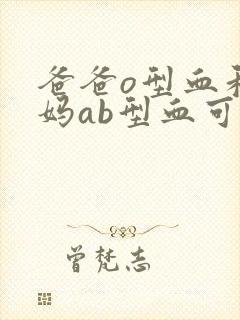 爸爸o型血和
妈ab型血可
曾梵志